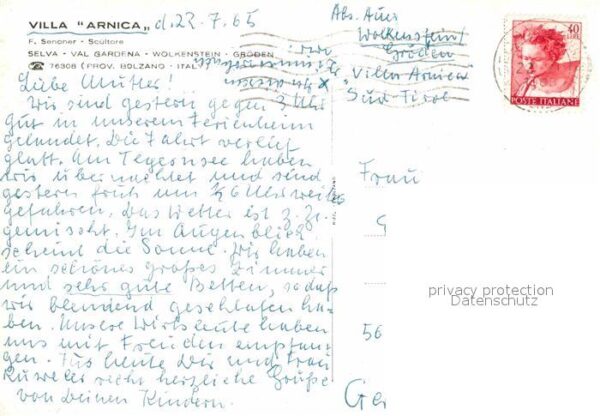 VILLA "ARNICA" d. 22.7.65
F. Senoner - Scultore
SELVA - VAL GARDENA - WOLKENSTEIN - GRÖDEN
☎ 76308 (PROV. BOLZANO - ITALI
Liebe Mutter!
Wir sind gestern gegen 3 Uhr
gut in unserem Ferienheim
gelandet. Die Fahrt verlief
glatt. Am Tegernsee haben
wir übernachtet und sind
gestern früh um ½6 Uhr weiter
gefahren. Das Wetter ist z. Zt.
gemischt. Im Augenblick
scheint die Sonne. Wir haben
ein schönes großes Zimmer
und sehr gute Betten, sodaß
wir blendend geschlafen ha-
ben. Unsere Wirtsleute haben
uns mit Freuden empfan-
gen. Für heute Dir und Frau
recht herzliche Grüße
von Deinen Kindern.
Abs. Aus
Wolkenstein/
Gröden
"Villa Arnica
Süd-Tirol
40
POSTE ITALIANE
Frau
G
56
Ge
privacy protection
Datenschutz